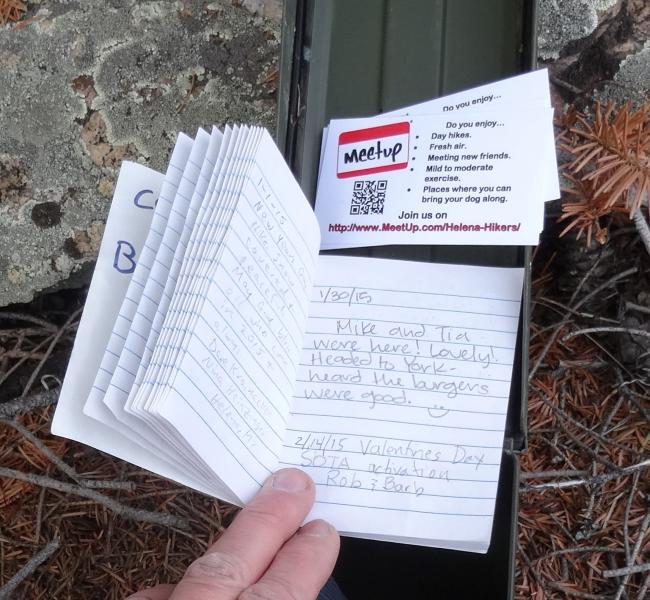 Do you enjoy...
Meetup
Do you enjoy...
• Day hikes.
• Fresh air.
• Meeting new friends.
• Mild to moderate
exercise.
• Places where you can
bring your dog along.
Join us on
http://www.MeetUp.com/Helena-Hikers/
C
B
1-1-15
New Years Day
May God bless
in 2015 +
Helena, Mt
1/30/15
Mike and Tia
were here! Lovely!
Headed to York-
heard the burgers
were good.
2/14/15 Valentines Day
SOTA activation
Rob & Barb